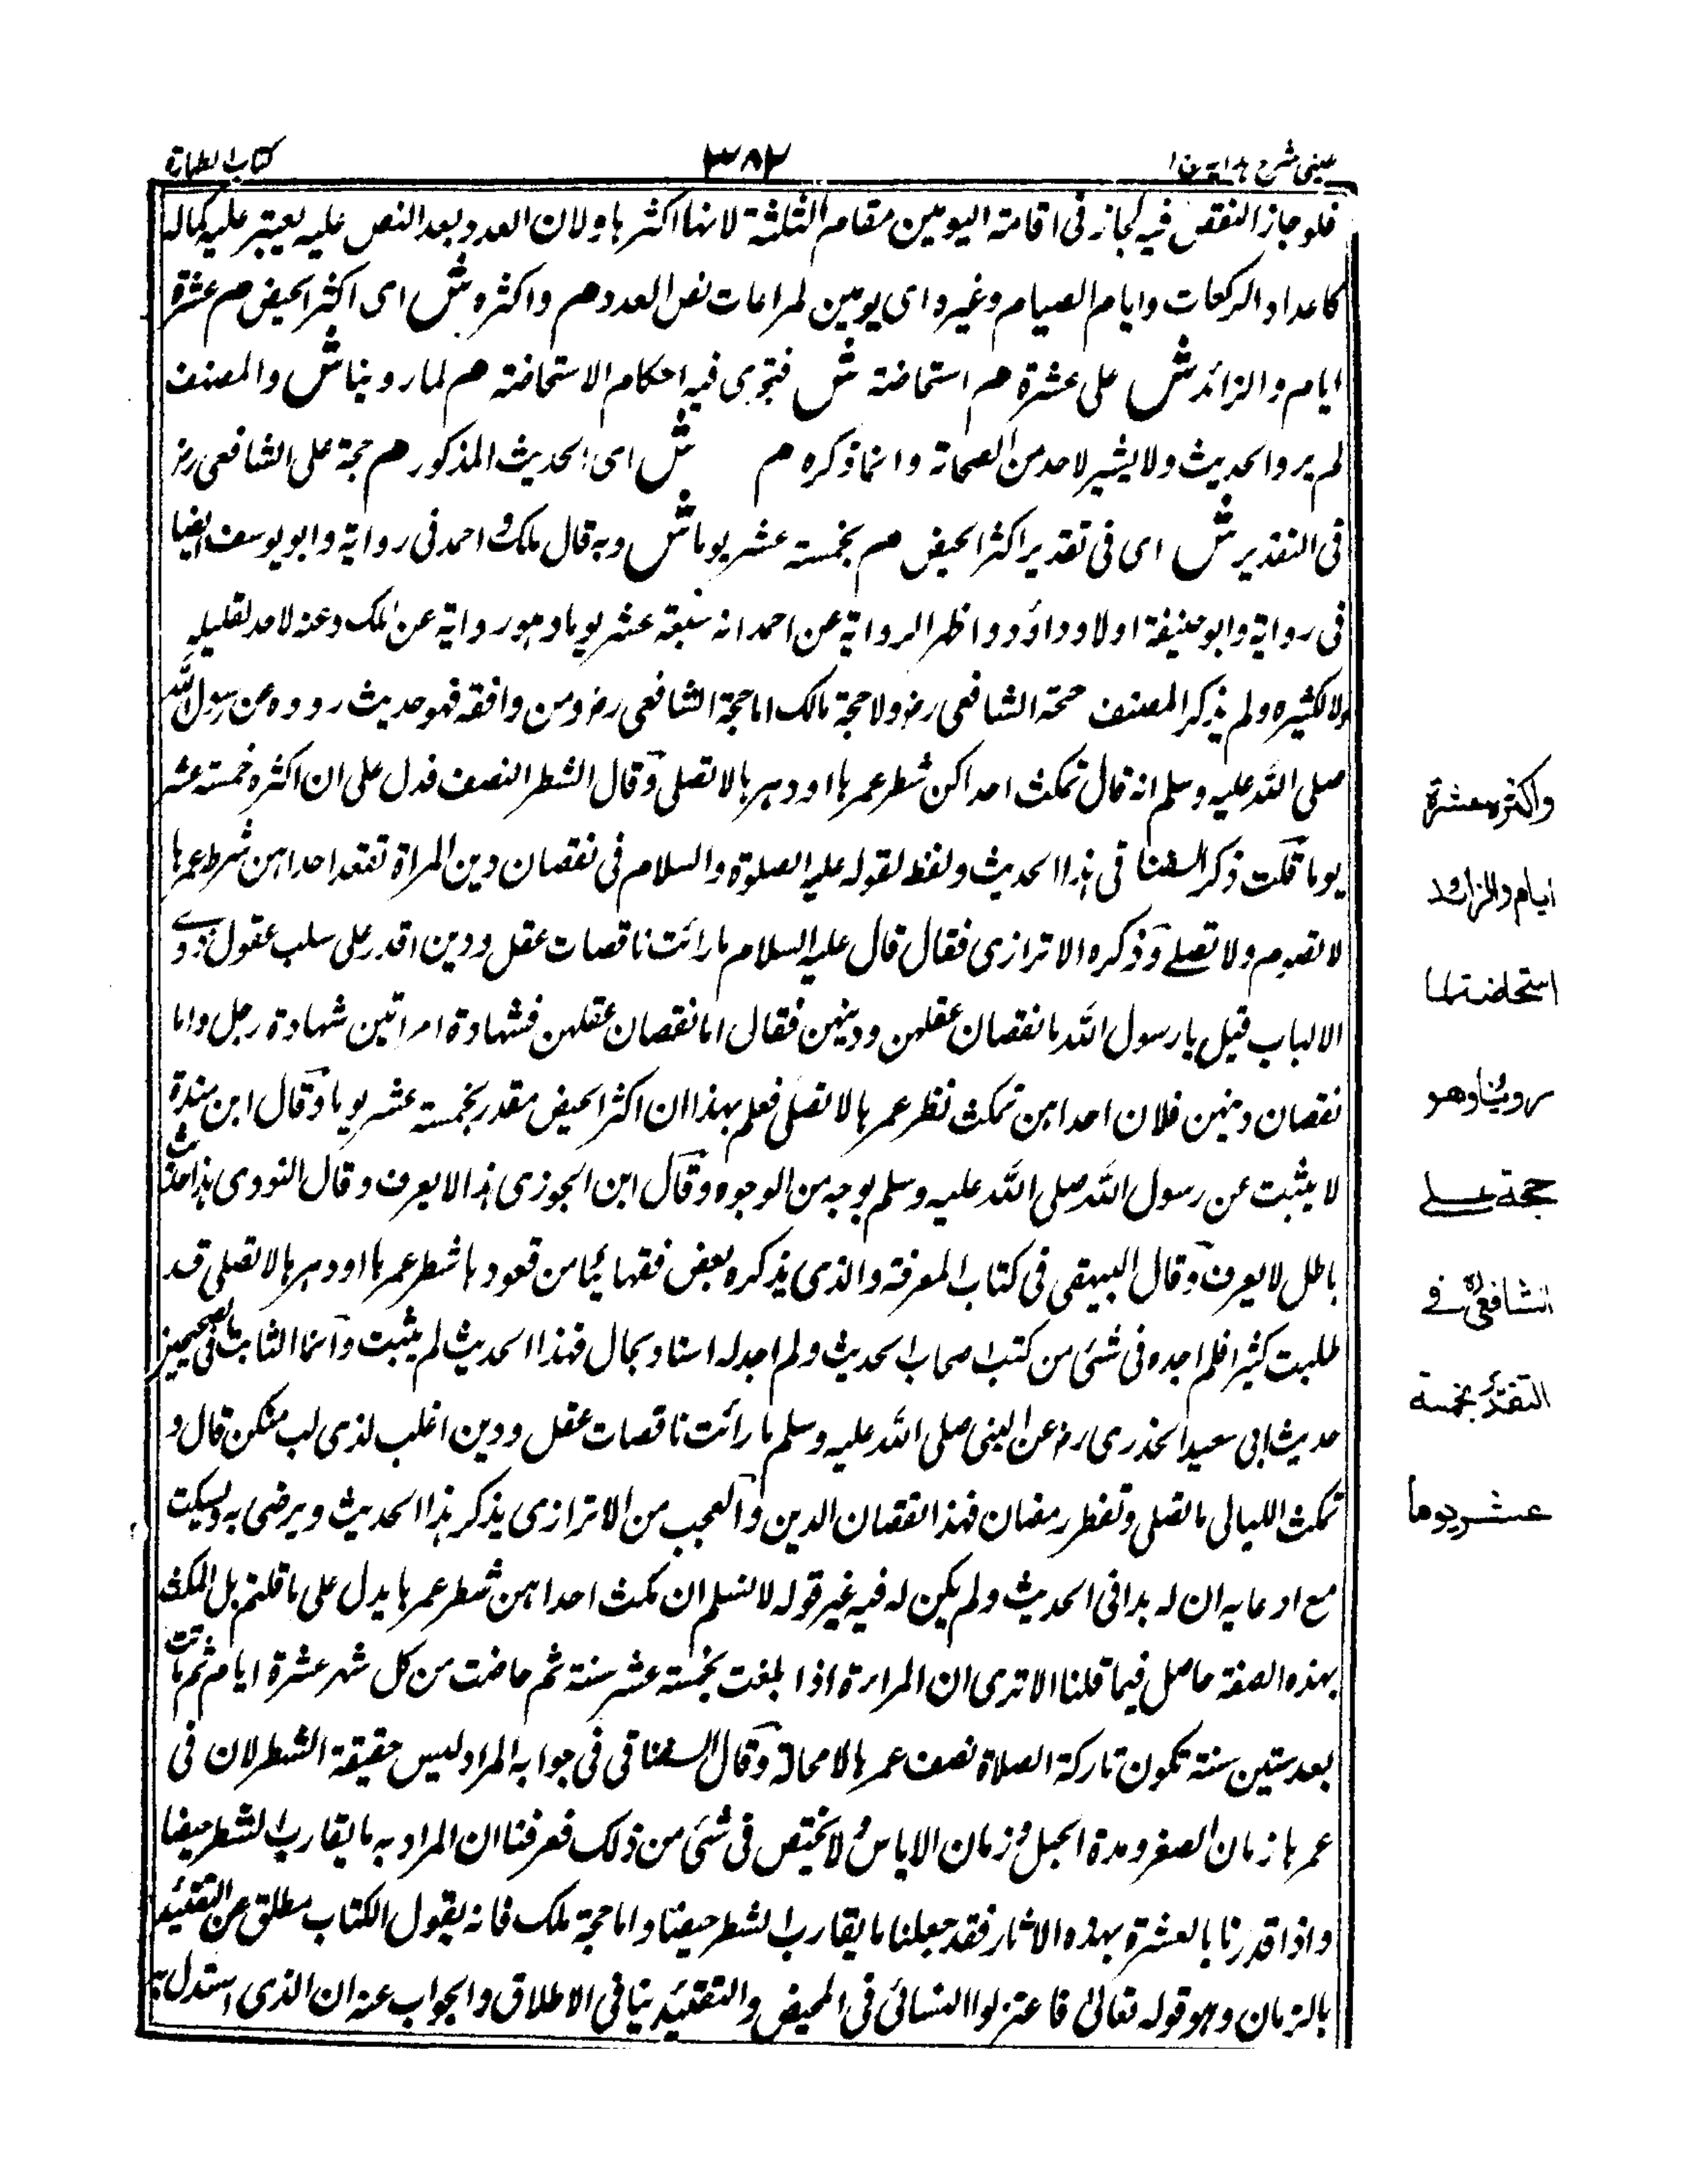 عینی شرح ہدایہ ج ۱
۳۸۲
کتاب الطہارة
فلو جاز النقص فیہ لجاز فی اقامة الیومین مقام الثلثة لانہا اکثرہا ولان العدد بعد النص علیہ یعتبر علیہ کمالہ
کاعداد الرکعات وایام الصیام وغیرہ ای یومین لمراعات نص العدد م واکثرہ ش ای اکثر الحیض م عشرة
ایام والزائد ش علی عشرة م استحاضة ش فتجری فیہ احکام الاستحاضة م لما روینا ش والمصنف
لم یرو الحدیث ولا یشیر لاحد من الصحابة وانما ذکرہ م ش ای الحدیث المذکور م حجة علی الشافعی رح
فی التقدیر ش ای فی تقدیر اکثر الحیض م بخمسة عشر یوما ش وبہ قال ملک واحمد فی روایة وابو یوسف ایضا
فی روایة وابو حنیفة اولا وداؤد واظہر الروایة عن احمد انہ سبعة عشر یوما وہو روایة عن ملک وعنہ لا حد لقلیلہ
ولا لکثیرہ ولم یذکر المصنف حجة الشافعی رح ولا حجة مالک اما حجة الشافعی رح ومن وافقہ فہو حدیث رووہ عن رسول اللہ
صلی اللہ علیہ وسلم انہ قال تمکث احداکن شطر عمرہا او دہرہا لا تصلی وقال الشطر النصف فدل علی ان اکثرہ خمسة عشر
یوما قلت ذکر السغناقی ہذا الحدیث ولفظ لقولہ علیہ الصلوة والسلام فی نقصان دین المراة تقعد احداہن شطر عمرہا
لا تصوم ولا تصلے وذکرہ الاترازی فقال قال علیہ السلام ما رائت ناقصات عقل ودین اقدر علی سلب عقول ذوی
الالباب قیل یا رسول اللہ ما نقصان عقلہن ودینہن فقال اما نقصان عقلہن فشہادة امراتین شہادة رجل واما
نقصان دینہن فلان احداہن تمکث نظر عمرہا لا تصلی فعلم بہذا ان اکثر الحیض مقدر بخمسة عشر یوما وقال ابن مندة
لا یثبت عن رسول اللہ صلی اللہ علیہ وسلم بوجہ من الوجوہ وقال ابن الجوزی ہذا لا یعرف وقال النووی ہذا حدیث
باطل لا یعرف وقال البیہقی فی کتاب المعرفة والذی یذکرہ بعض فقہائنا من قعودہا شطر عمرہا او دہرہا لا تصلی قد
طلبت کثیرا فلم اجدہ فی شئی من کتب اصحاب الحدیث ولم اجد لہ اسناد بحال فہذا الحدیث لم یثبت وانما الثابت فی الصحیحین
حدیث ابی سعید الخدری رض عن النبی صلی اللہ علیہ وسلم ما رائت ناقصات عقل ودین اغلب لذی لب منکن قال و
تمکث اللیالی ما تصلی وتفطر رمضان فہذا نقصان الدین والعجب من الاترازی یذکر ہذا الحدیث ویرضی بہ ویسکت
مع ادعایہ ان لہ یدا فی الحدیث ولم یکن لہ فیہ غیر قولہ لا نسلم ان مکث احداہن شطر عمرہا یدل علی ما قلتم بل المکث
بہذہ الصفة حاصل فیما قلنا الا تری ان المراة اذا بلغت بخمسة عشر سنة ثم حاضت من کل شہر عشرة ایام ثم ماتت
بعد ستین سنة تکون تارکة الصلاة نصف عمرہا لا محالة وقال السغناقی فی جوابہ المراد لیس حقیقة الشطر لان فی
عمرہا زمان الصغر ومدة الحبل وزمان الایاس ولا یختص فی شئی من ذلک فعرفنا ان المراد بہ ما یقارب الشطر حیضا
واذا قدرنا بالعشرة بہذہ الاثار فقد جعلنا ما یقارب الشطر حیضا واما حجة ملک فانہ یقول الکتاب مطلق عن التقئید
بالزمان وہو قولہ تعالیٰ فاعتزلوا النسائی فی المحیض والتقئید ینافی الاطلاق والجواب عنہ ان الذی استدل بہ
واکثرہ عشرة
ایام والزاید
استحاضة لما
روینا وھو
حجة علے
الشافعی فے
التقدیر بخمسة
عشر یوما